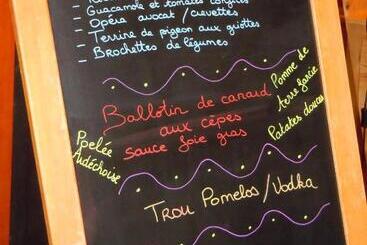 - Guacamole et tomates confites
- Opéra avocat / crevettes
- Terrine de pigeon aux griottes
- Brochettes de légumes
Ballotin de canard
aux cèpes
sauce foie gras
Pomme de
terre farcie
Patates douces
Poelée
Ardéchoise
Trou Pomelos / Vodka